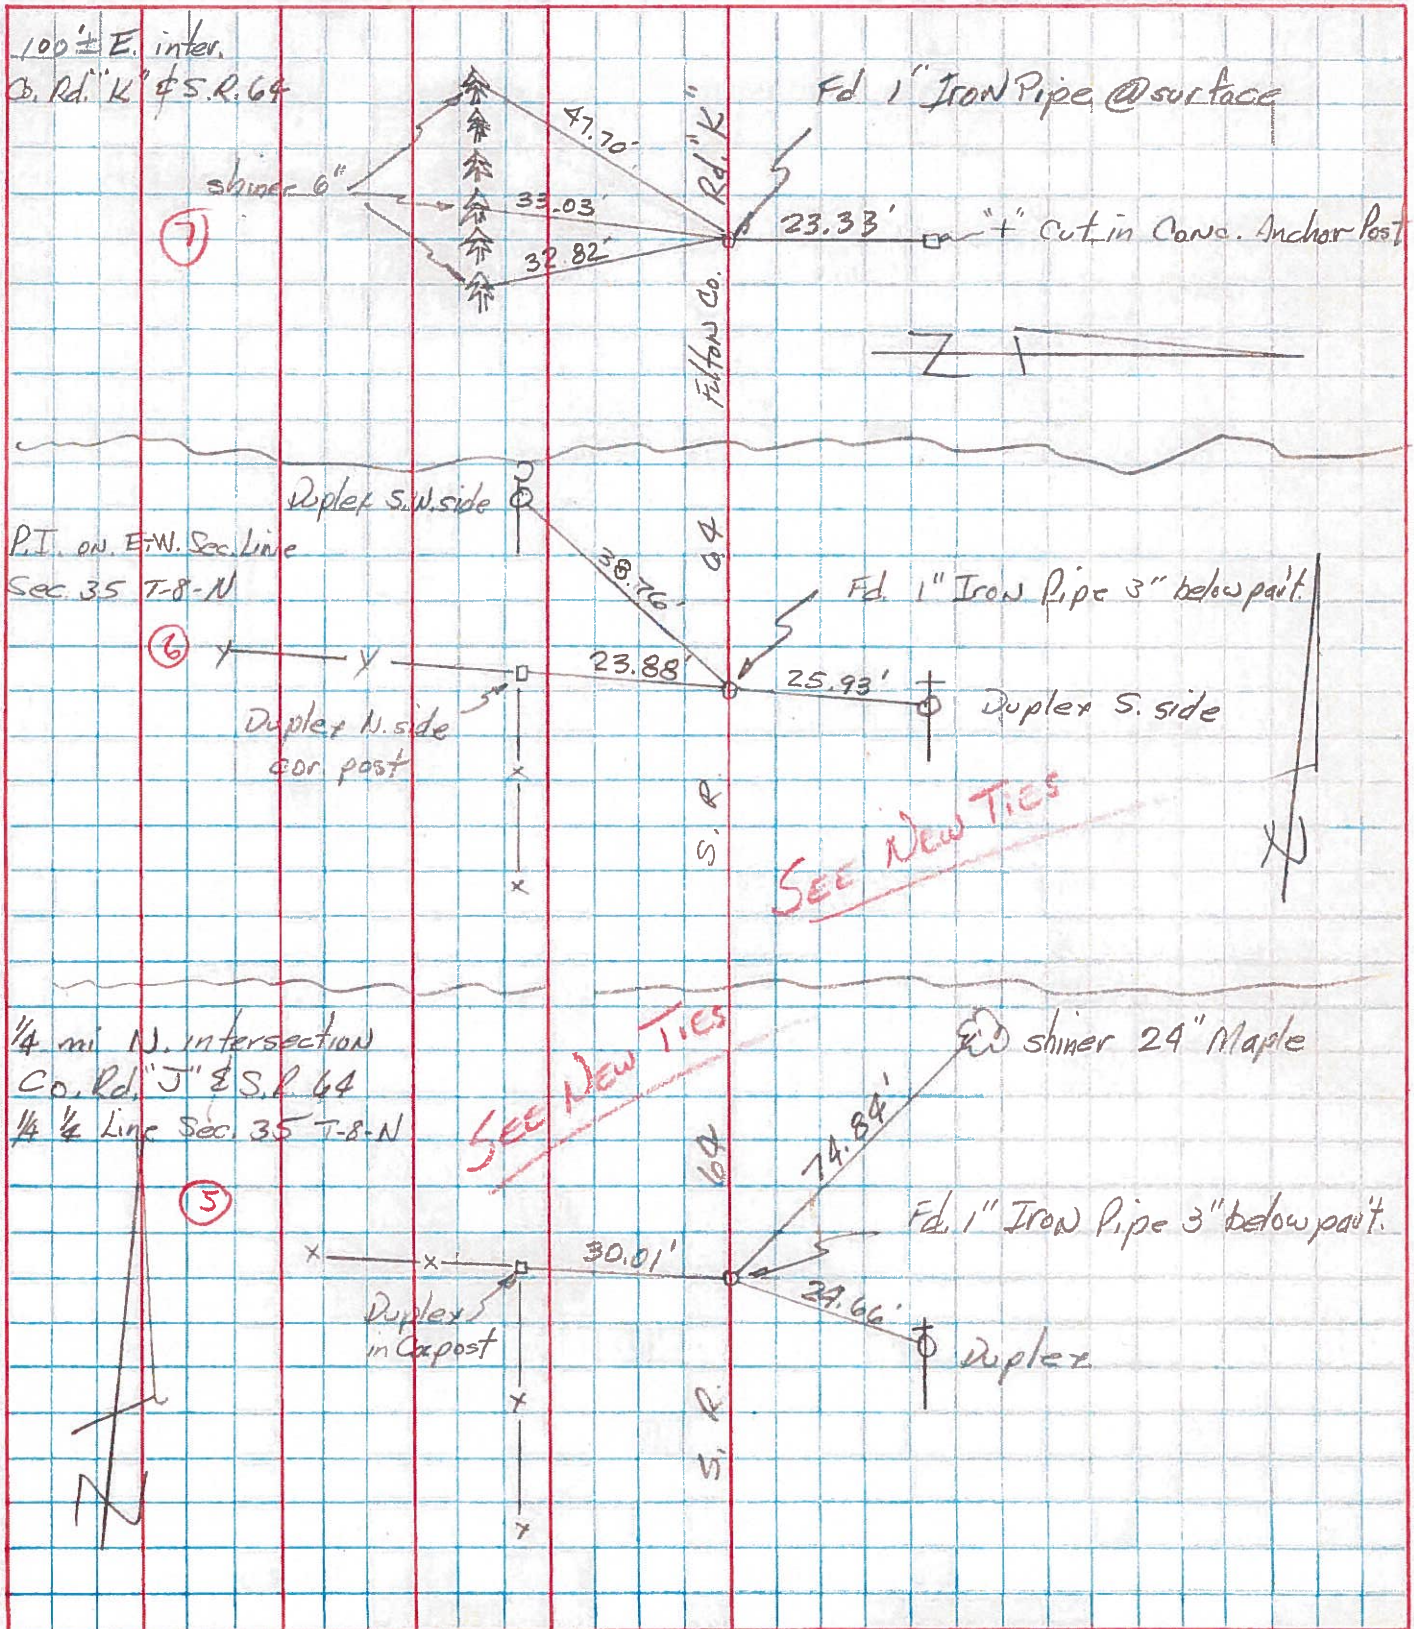 100'± E. inter.
Co. Rd. "K" & S.R. 64
shiner 6"
7
47.70'
33.03'
32.82'
Fulton Co. Rd. "K"
Fd 1" Iron Pipe @ surface
23.33'
"+" Cut in Conc. Anchor Post
N
Duplex S.W. side
P.I. on E-W. Sec. Line
Sec. 35 T-8-N
6
38.76'
23.88'
25.93'
S. R. 64
Fd. 1" Iron Pipe 3" below pav't.
Duplex S. side
Duplex N. side
cor. post
SEE NEW TIES
N
1/4 mi N. intersection
Co. Rd. "J" & S.R. 64
1/4 1/4 Line Sec. 35 T-8-N
5
SEE NEW TIES
shiner 24" Maple
74.84'
Fd. 1" Iron Pipe 3" below pav't.
30.01'
24.66'
Duplex
in Cor post
Duplex
S. R. 64
N